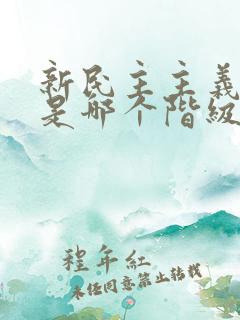 新民主主義
是哪个階級
程年紅
未经同意禁止转载